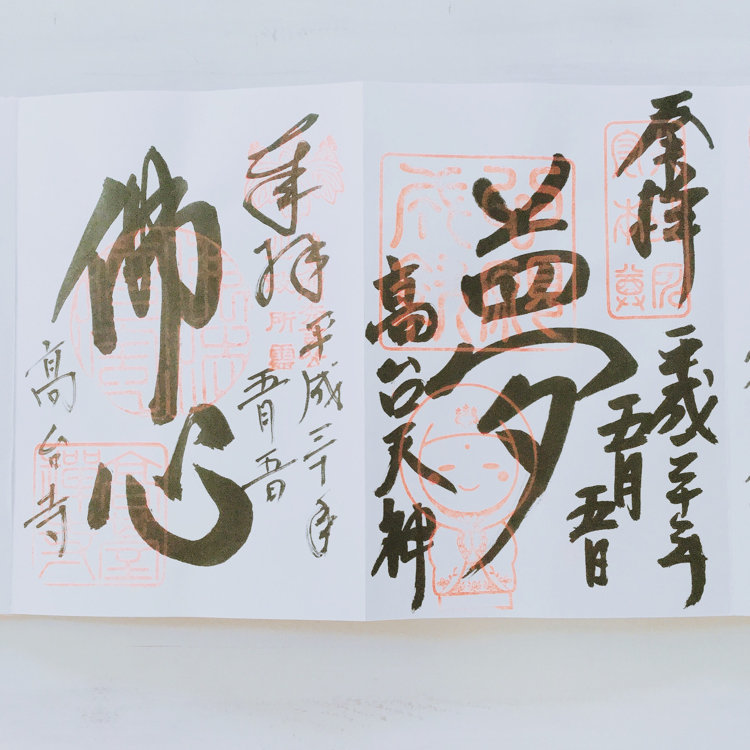 奉拝
平成三十年
五月
五日
夢
心願
成就
高台天神
奉拝
平成三十年
五月五日
佛心
高台寺